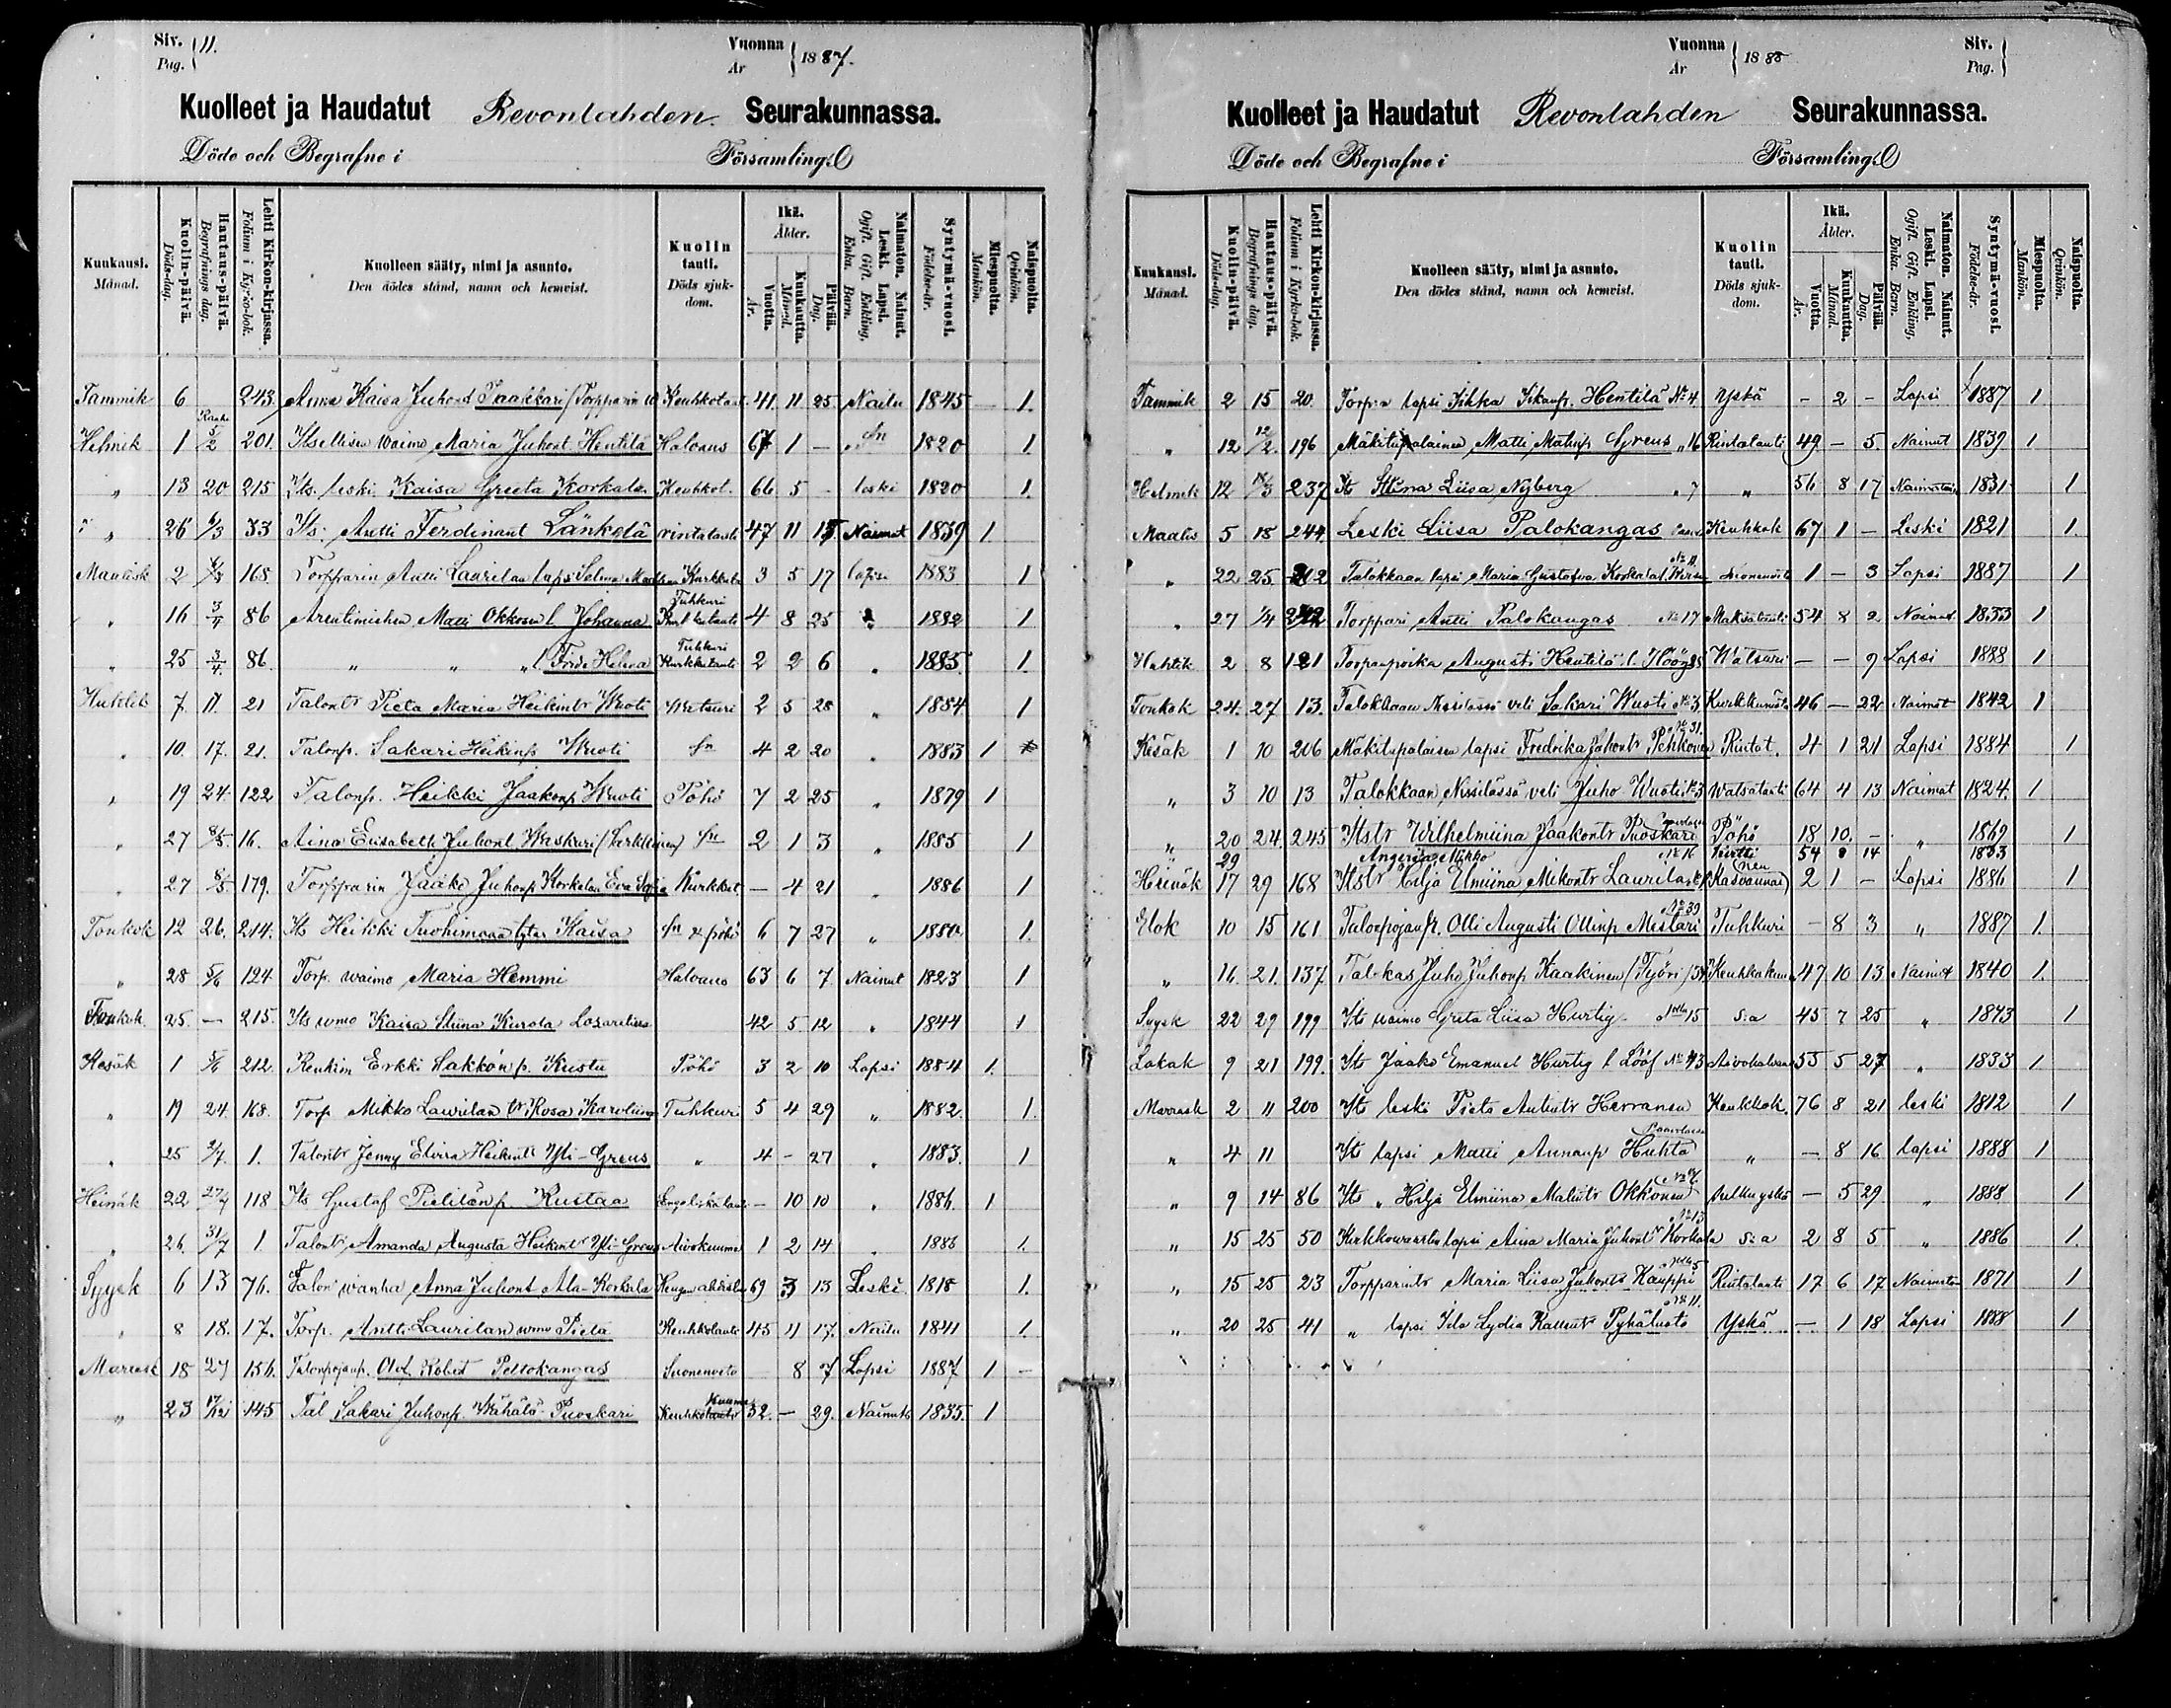 Siv. Pag. } 11.
Vuonna År } 1887.
Kuolleet ja Haudatut Revonlahden Seurakunnassa.
Döde och Begrafne i Församling.
Kuukausi. Månad.
Kuolin-päivä. Döds-dag.
Hautaus-päivä. Begrafnings dag.
Lehti Kirkon-kirjassa. Folium i Kyrko-bok.
Kuolleen sääty, nimi ja asunto. Den dödes stånd, namn och hemvist.
Kuolin tauti. Döds sjukdom.
Ikä. Ålder.
Vuotta. År.
Kuukautta. Månad.
Päivää. Dag.
Naimaton. Nainut. Leski. Lapsi. Ogift. Gift. Enkling. Enka. Barn.
Syntymä-vuosi. Födelse-år.
Miespuolta. Mankön.
Naispuolta. Qvinkön.
Tammik 6 243 Anna Kaisa Juhont Taakkari 41 11 25 Nailu 1845 1.
Helmik 1 5/2 201. Itsellisen waimo Maria Juhont Hentilä Halvaus 67 1 - 1820 1
" 13 20 215 Its. leski Kaisa Greeta Korkala Keuhkot. 66 5 - leski 1820 1.
" 26 6/3 33 Its. Antti Ferdinant Länkelä rintatauti 47 11 Naimat 1839 1
Maalisk 2 168 Torpparin Antti Laurilan laps Selma 3 5 17 lapsi 1883 1
" 16 3/4 86 Matti Okkosen l Johanna Tuhkuri 4 8 25 " 1882 1
" 25 3/4. 86. " " " l. Helena Tuhkuri Kurkkutauti 2 2 6 " 1885. 1.
Huhtik 7. 11. 21 Talontr Pieta Maria Heikintr Wuoti 2 5 28 " 1884 1
" 10. 17. 21. Talonp. Sakari Heikinp Wuoti 4 2 20 " 1883 1
" 19 24. 122 Talonp. Heikki Jaakonp Wuoti Pöhö 7 2 25 " 1879 1
" 27 8/5. 16. Aina Elisabeth Juhont 2 1 3 " 1885 1
" 27 8/5 179. Torpparin Jaako Juhonp Korkalan Eva Sofia Kurkkut. - 4 21 " 1886 1
Toukok 12 26. 214. Its Heikki Tuohimaan tytär Kaisa 6 7 27 " 1880 1.
" 28 5/6 124 Torp. waimo Maria Hemmi Halvaus 63 6 7 Nainut 1823 1
Toukok. 25. - 215. Its wmo Kaisa Stiina Kurola 42 5 12 " 1844 1
Kesäk 1 5/6 212 Renkim Erkki Lakkon p. Kustu Pöhö 3 2 10 Lapsi 1884 1.
" 19 24. 168. Torp Mikko Laurilan tr Rosa Karoliina Tuhkuri 5 4 29 " 1882. 1.
" 25 2/7. 1. Talontr Jenny Elvira Heikintr Yli-Greus " 4 - 27 " 1883. 1
Heinäk 22 27/7 118 Its Gustaf Pielilän p Kustaa - 10 10 " 1886. 1
" 26. 31/7 1 Talontr Amanda Augusta Heikintr Yli-Greus Aivokuume 1 2 14 " 1886 1.
Syysk 6 13 76. Talon wanha Anna Juhont Ala-Korkala 69 3 13 Leski 1818 1.
" 8 18. 17. Torp. Antti Laurilan wmo Pieta Keuhkotauti 45 11 17. Nailu 1841 1.
Marrask 18 27 156. Talonpojanp. Olof Robert Peltokangas Suonenveto 8 7 Lapsi 1887 1 -
" 23 145 Tal Sakari Juhonp. Puoskari 52. - 29. Nainut 1835. 1
Vuonna År } 1888
Siv. Pag. }
Kuolleet ja Haudatut Revonlahden Seurakunnassa.
Döde och Begrafne i Församling.
Kuukausi. Månad.
Kuolin-päivä. Döds-dag.
Hautaus-päivä. Begrafnings dag.
Lehti Kirkon-kirjassa. Folium i Kyrko-bok.
Kuolleen sääty, nimi ja asunto. Den dödes stånd, namn och hemvist.
Kuolin tauti. Döds sjukdom.
Ikä. Ålder.
Vuotta. År.
Kuukautta. Månad.
Päivää. Dag.
Naimaton. Nainut. Leski. Lapsi. Ogift. Gift. Enkling, Enka. Barn.
Syntymä-vuosi. Födelse-år.
Miespuolta. Mankön.
Naispuolta. Qvinkön.
Tammik 2 15 20. Torp:n lapsi Iikka Iikanp. Hentilä No 4 Yskä - 2 - Lapsi 1887 1
" 12 12/2. 196 Mäkitupalainen Matti Matinp Greus " 16 Rintatauti 49 - 5. Nainut 1839 1
Helmik 12 237 Its Stiina Liisa Nyberg " 7 " 56 8 17 1831 1
Maalis 5 18 244 Leski Liisa Palokangas Keuhkok 67 1 - Leski 1821 1.
" 22 25. 212 Talokkaan lapsi Maria Gustafva Korkala No 11. Suonenveto 1 - 3 Lapsi 1887 1
" 27 1/4 242 Torppari Antti Palokangas No 17 Maksatauti 54 8 2 Nainut 1833 1
Huhtik 2 8 121 Torpanpoika Augusti Hentilä Watsuri - - 9 Lapsi 1888 1
Toukok 24. 27 13. Talokkaan veli Sakari Wuoti No 3 46 - 22 Naimat 1842 1
Kesäk 1 10 206 Mäkitupalaisen lapsi Fredrika Juhontr Pehkonen No 31. Rintat. 4 1 21 Lapsi 1884 1
" 3 10 13 Talokkaan Nissilässä veli Juho Wuoti No 3 Watsatauti 64 4 13 Naimat 1824. 1
" 20 24. 245 Itstr Wilhelmiina Jaakontr Puoskari Pöhö 18 10. - " 1869 1
29 Angeria Mikko No 16 54 8 14 1833
Heinäk 17 29 168 Itstr Hilja Elmiina Mikontr Laurila 2 1 - Lapsi 1886 1
Elok 10 15 161 Talonpojanp. Olli Augusti Ollinp Mestari No 39 Tuhkuri - 8 3 " 1887 1.
" 16. 21. 137 Tal-kas Juho Juhonp Kaakinen (Työri) 34 47 10 13 Nainut 1840 1.
Syysk 22 29 199 Its waimo Greta Liisa Hurtig No 15 S:a 45 7 25 " 1843 1
Lokak 9 21 199. Its Jaako Emanuel Hurtig l Lööf No 43 Aivohalvaus 55 5 27 " 1833 1
Marrask 2 11 200 Its leski Pieta Antintr Herranen Keuhkok 76 8 21 leski 1812 1
" 4 11 Its lapsi Matti Annanp Huhta " - 8 16 lapsi 1888 1
" 9 14 86 Its " Hilja Elmiina Matintr Okkonen - 5 29. " 1888. 1
" 15 25 50 Kirkkowaarin lapsi Aina Maria Juhontr Korkala No 13 S:a 2 8 5 " 1886 1.
" 15 25 23 Torpparintr Maria Liisa Juhontr Kauppi No 5 Rintatauti 17 6 17 1871 1
" 20 25 41 " lapsi Iida Lydia Kallentr Pyhäluoto No 11. Yskä - 1 18 Lapsi 1888 1